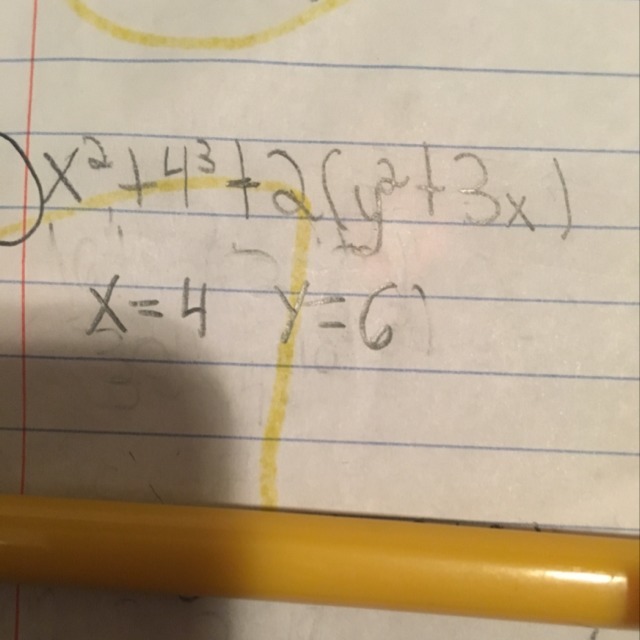 x²+4³+2(y²+3x)
x=4 y=6